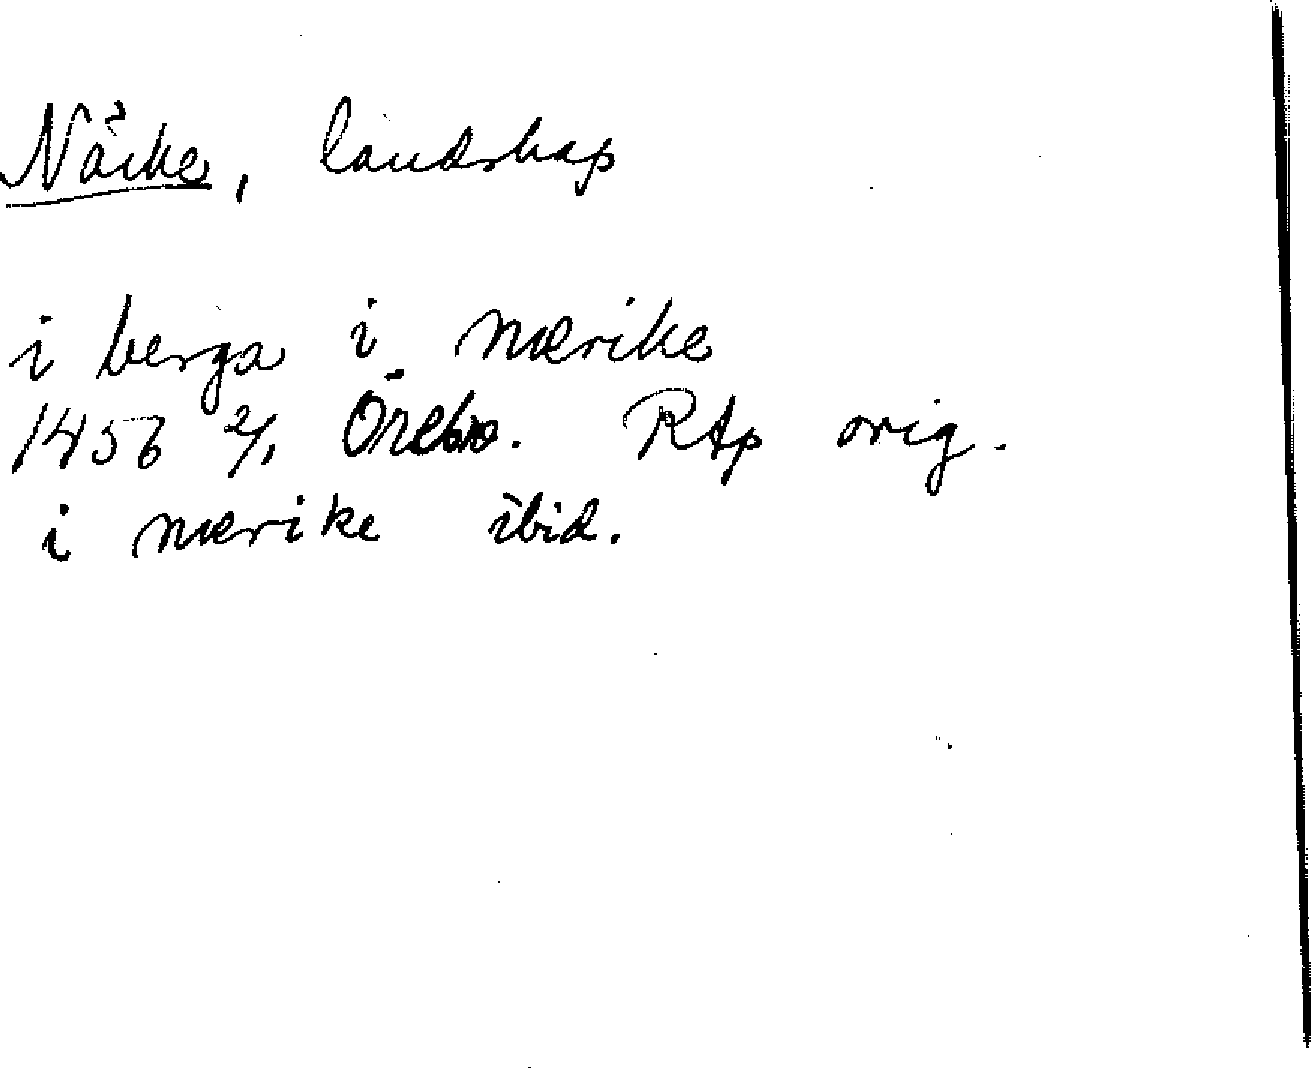 Närke, landskap
i berga i nærike
1456 2/1 Örebro. RAp orig.
i nærike ibid.